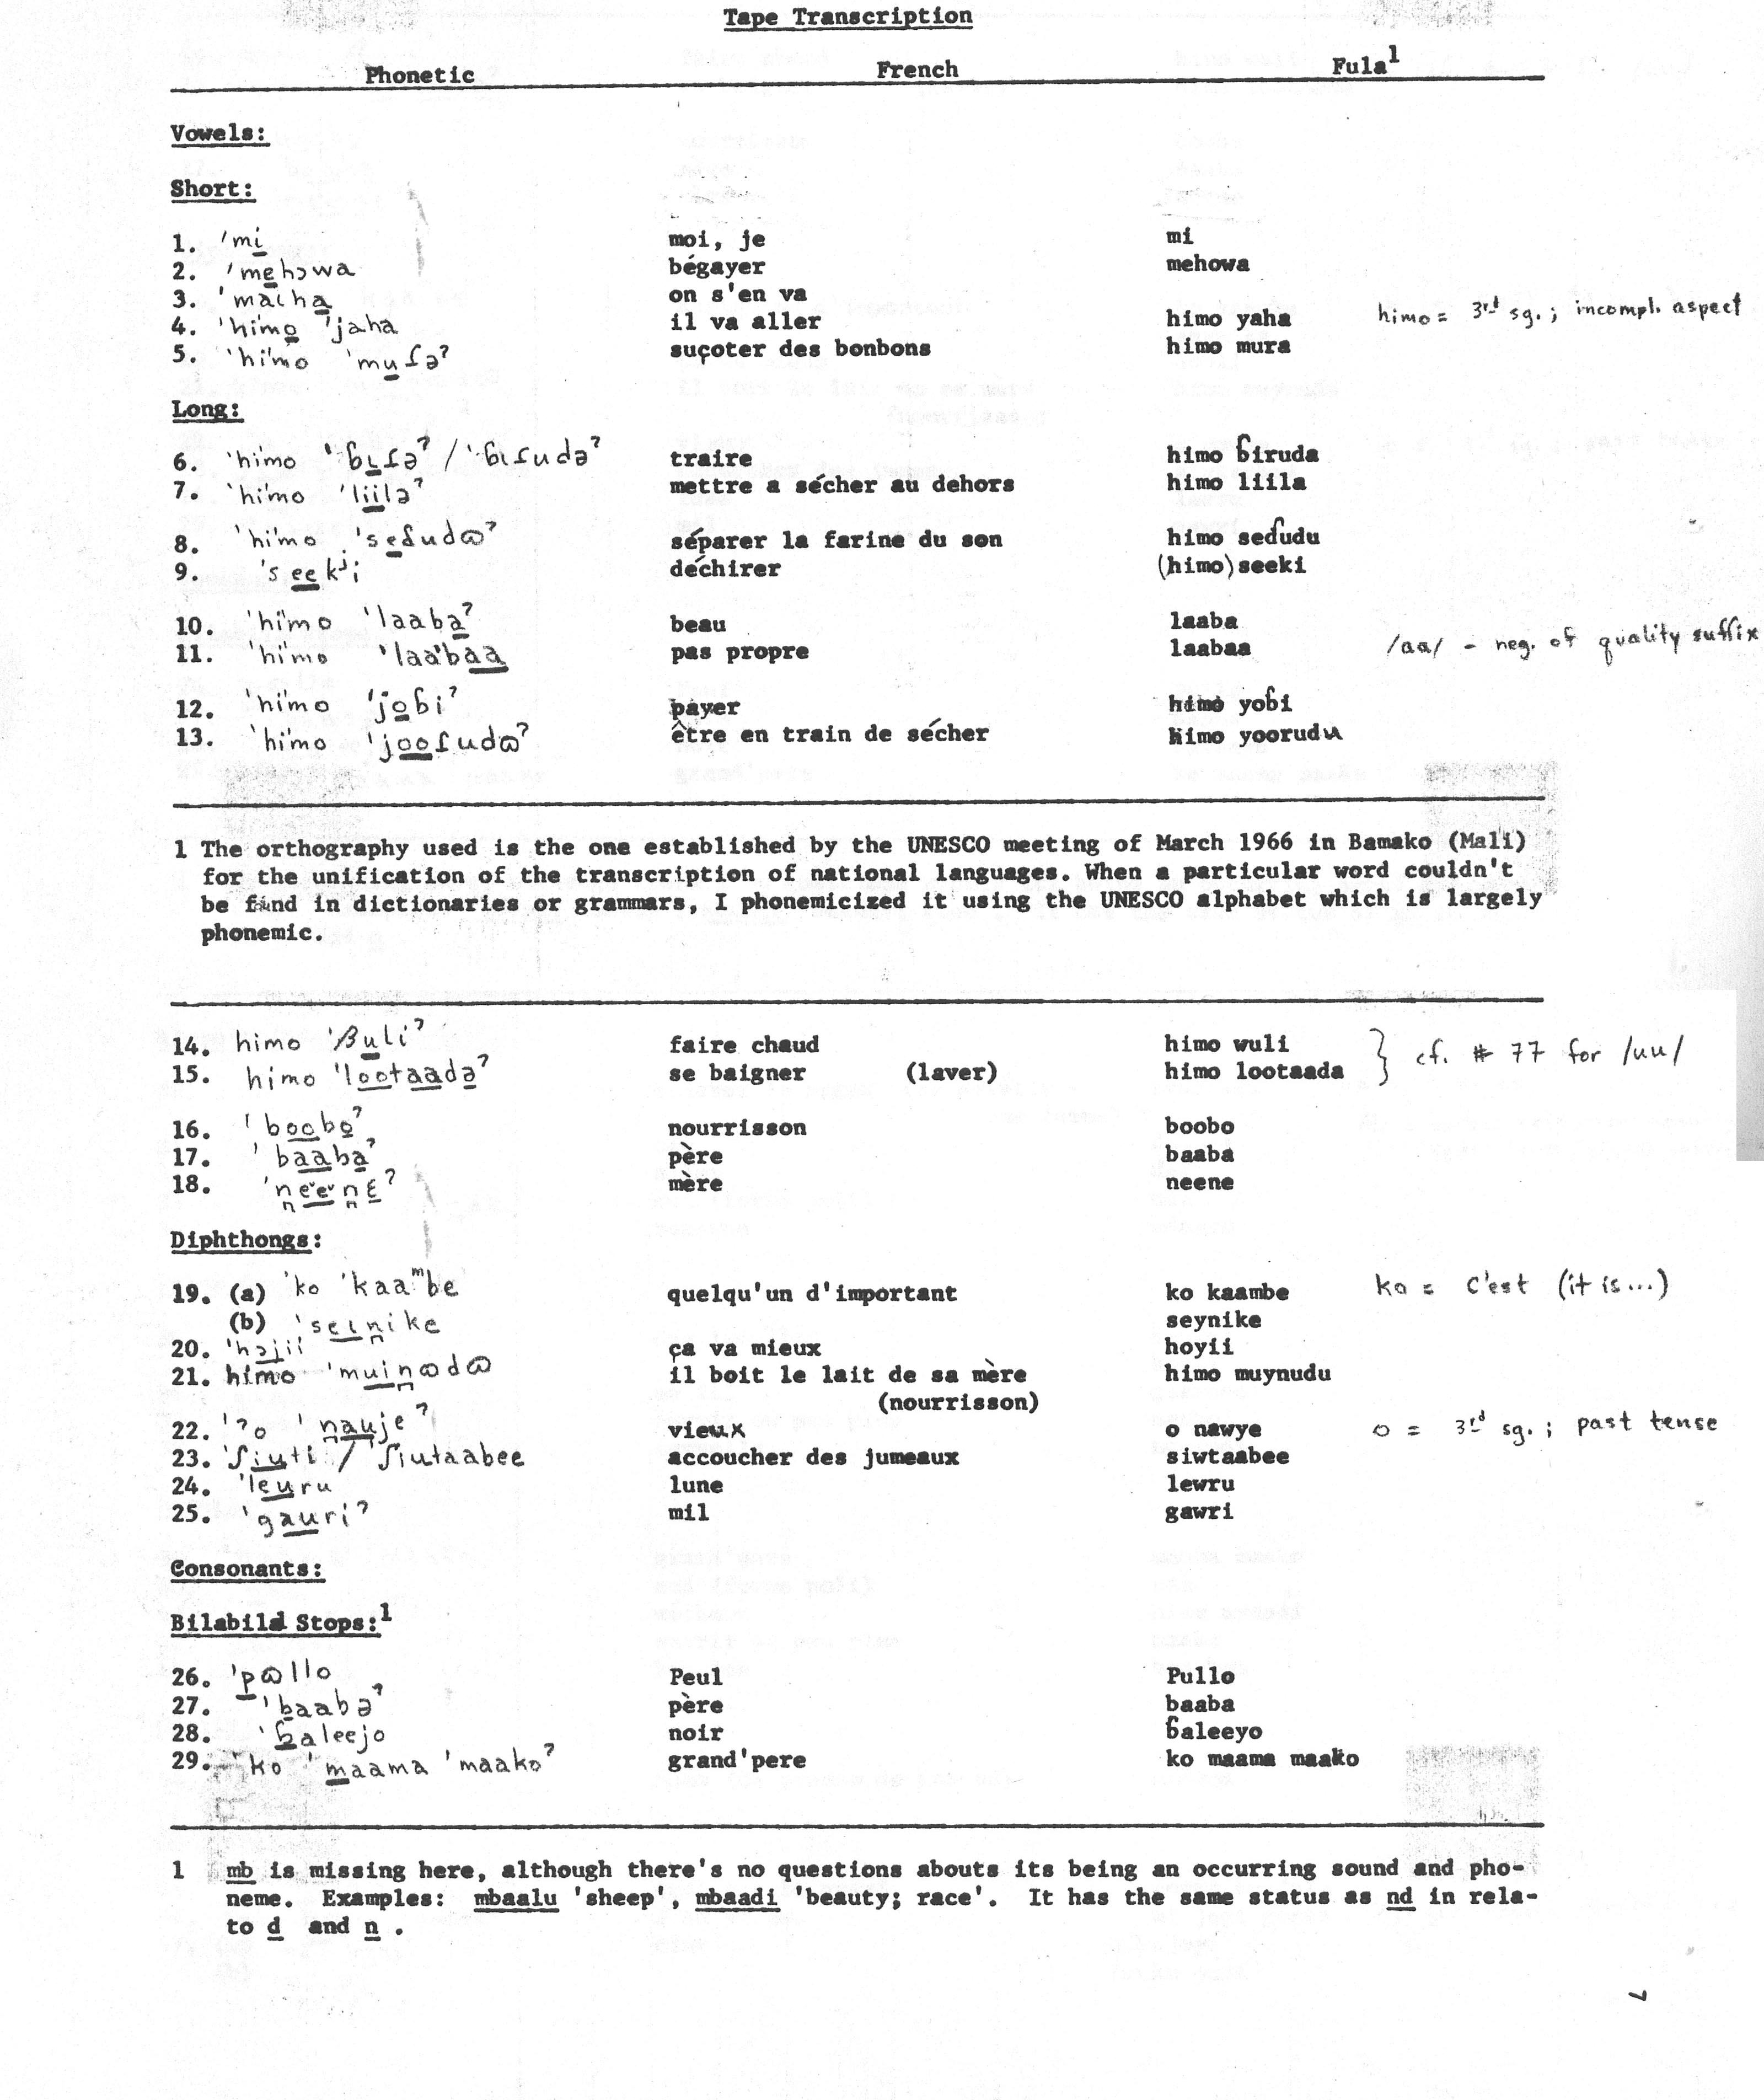 Tape Transcription
Phonetic French Fula¹
Vowels:
Short:
1. 'mi moi, je mi
2. 'mehɔwa bégayer mehowa
3. 'maɩha on s'en va
4. 'himo 'jaha il va aller himo yaha himo = 3rd sg.; incompl. aspect
5. 'himo 'muɾəˀ suçoter des bonbons himo mura
Long:
6. 'himo 'ɓɩɾəˀ / 'ɓɩɾudəˀ traire himo ɓiruda
7. 'himo 'liiləˀ mettre a sécher au dehors himo liila
8. 'himo 'seɗudɷˀ séparer la farine du son himo seɗudu
9. 'seekʲi déchirer (himo) seeki
10. 'himo 'laabaˀ beau laaba
11. 'himo 'laa'baa pas propre laabaa /aa/ - neg. of quality suffix
12. 'himo 'joɓiˀ payer himo yoɓi
13. 'himo 'jooɾudɷˀ être en train de sécher himo yoorudu
1 The orthography used is the one established by the UNESCO meeting of March 1966 in Bamako (Mali)
for the unification of the transcription of national languages. When a particular word couldn't
be fund in dictionaries or grammars, I phonemicized it using the UNESCO alphabet which is largely
phonemic.
14. himo 'βuliˀ faire chaud himo wuli } cf. # 77 for /uu/
15. himo 'lootaadəˀ se baigner (laver) himo lootaada
16. 'booboˀ nourrisson boobo
17. 'baabaˀ père baaba
18. 'n̪eˇeˇn̪ɛˀ mère neene
Diphthongs:
19. (a) 'ko 'kaaᵐbe quelqu'un d'important ko kaambe ko = c'est (it is...)
(b) 'seɩn̪ike seynike
20. 'hɔjii ça va mieux hoyii
21. himo 'muin̪ɷdɷ il boit le lait de sa mère himo muynudu
(nourrisson)
22. 'ʔo 'n̪aujeˀ vieux o nawye o = 3rd sg.; past tense
23. 'ʃiuti / 'ʃiutaabee accoucher des jumeaux siwtaabee
24. 'leuru lune lewru
25. 'gauriˀ mil gawri
Consonants:
Bilabild Stops:¹
26. 'pɷllo Peul Pullo
27. 'baabəˀ père baaba
28. 'ɓaleejo noir ɓaleeyo
29. 'ko 'maama 'maakoˀ grand'pere ko maama maako
1 mb is missing here, although there's no questions abouts its being an occurring sound and pho-
neme. Examples: mbaalu 'sheep', mbaadi 'beauty; race'. It has the same status as nd in rela-
to d and n .
7